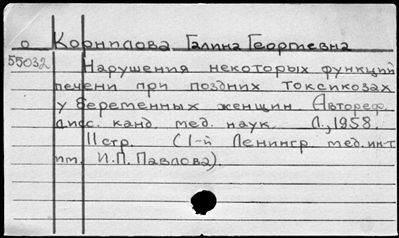 О Корнилова Галина Георгиевна
55032 Нарушения некоторых функций
печени при поздних токсикозах
у беременных женщин. Автореф.
дисс. канд. мед. наук. Л., 1958.
11стр. (1-й Ленингр. мед. ин-т
им. И.П. Павлова).